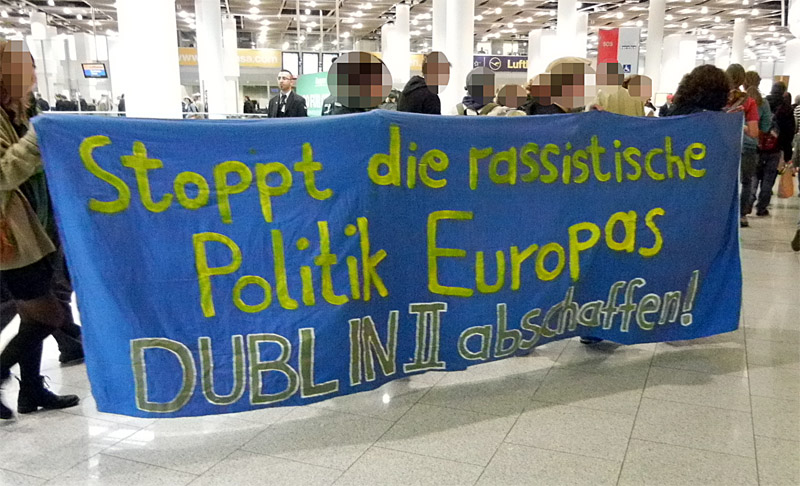 Stoppt die rassistische
Politik Europas
DUBLIN II abschaffen!